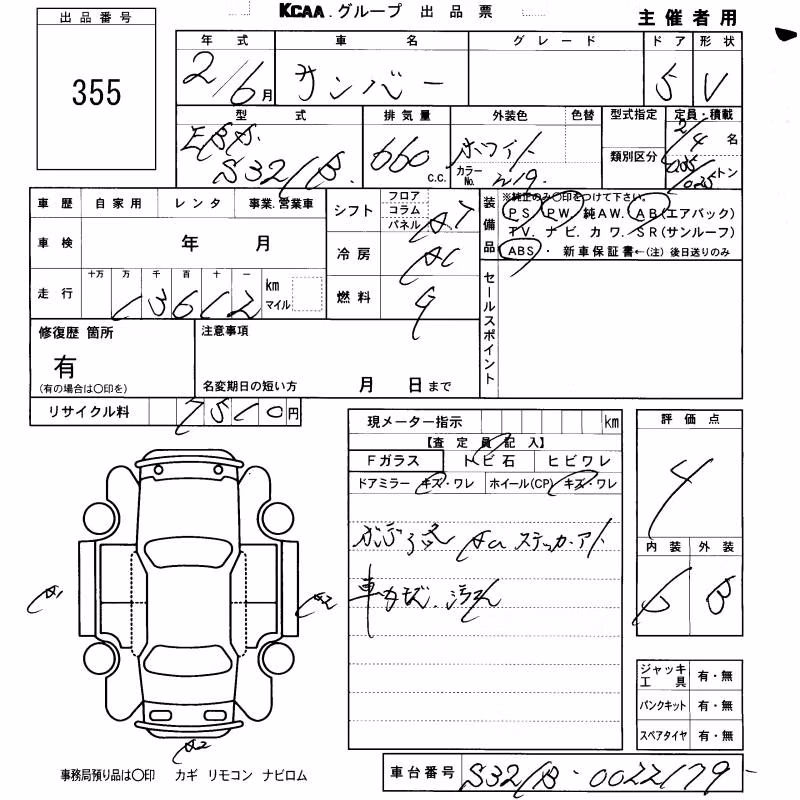 KCAA.グループ 出品票
主催者用
出品番号
355
年式 車名 グレード ドア 形状
2/6月 サンバー 5 V
型式 排気量 外装色 色替 型式指定 定員・積載
EBD. ホワイト 2/4名
S321B. 660 c.c. カラーNo. W19. 類別区分 トン
車歴 自家用 レンタ 事業.営業車
シフト フロア コラム パネル AT
装備品 ※純正のみ〇印をつけて下さい。
PS PW 純AW. AB(エアバック)
TV. ナビ. カワ. SR(サンルーフ)
ABS・ 新車保証書←(注)後日送りのみ
車検 年 月
冷房 AC
走行 十万 万 千 百 十 一 km マイル
13612
燃料 G
セールスポイント
修復歴 箇所
有
(有の場合は〇印を)
注意事項
名変期日の短い方 月 日まで
リサイクル料 7510円
現メーター指示 km
【査定員記入】
Fガラス トビ石 ヒビワレ
ドアミラー キズ・ワレ ホイール(CP) キズ・ワレ
ステッカーアト
評価点
4
内装 外装
B
A1
A2
A2
ジャッキ工具 有・無
パンクキット 有・無
スペアタイヤ 有・無
事務局預り品は〇印 カギ リモコン ナビロム
車台番号 S321B-0022179-